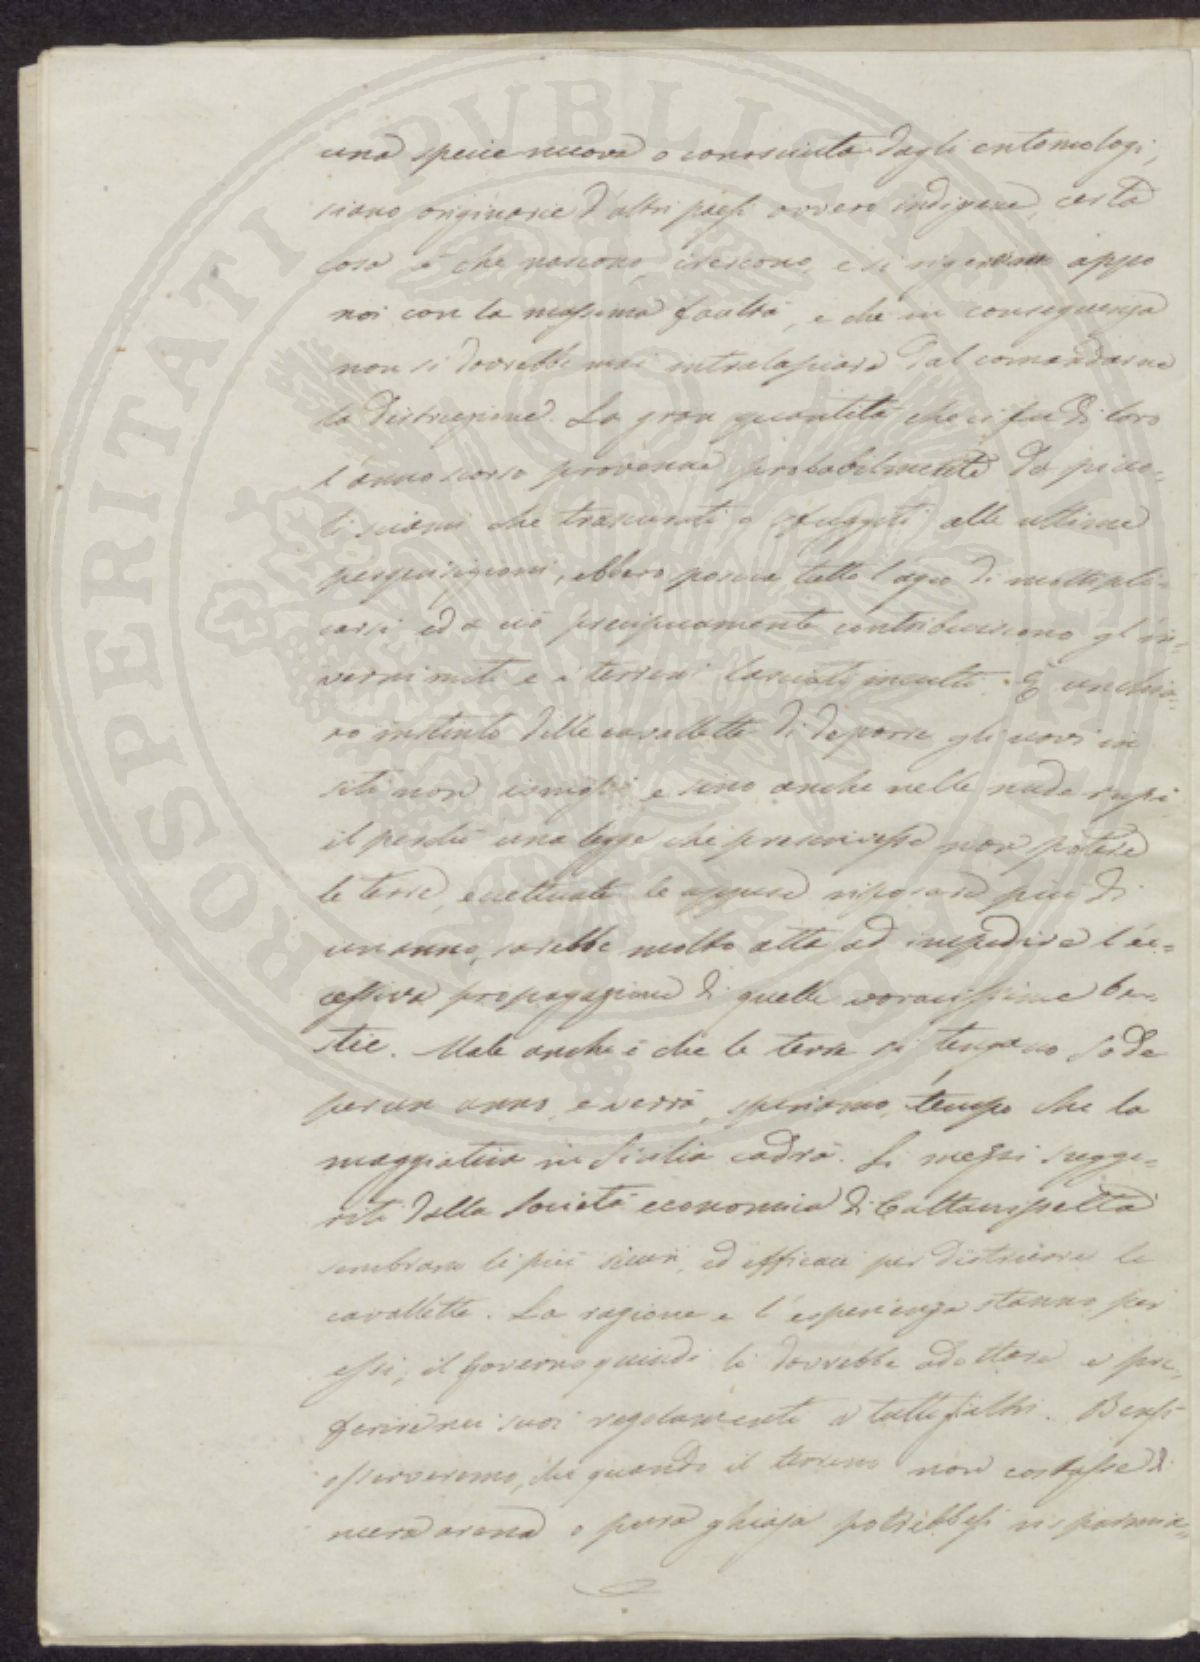 una specie nuova o conosciuta dagli entomologi,
siano originarie d'altri paesi ovvero indigene, certa
cosa è che nascono, crescono, e si rigenerano appo
noi con la massima faciltà, e che in conseguenza
non si dovrebbe mai intralasciare dal comandarne
la distruzione. La gran quantità che ci fu di loro
l'anno scorso provenne probabilmente da picco-
li sciami che trascurati, o sfuggiti alle ultime
perquisizioni, ebbero poscia tutto l'agio di moltipli-
carsi, ed a ciò precipuamente contribuiscono gl'in-
verni miti e i terreni lasciati inculti. È un chia-
ro instinto delle cavallette di deporre gli uovi in
siti non smossi e sino anche nelle nude rupi
il perché una legge che prescrivesse non potere
le terre, eccettuate le appese riposare più di
un anno, sarebbe molto atta ad impedire l'ec-
cessiva propagazione di quelle voracissime be-
stie. Male anche è che le terre si tengano sode
per un anno, e verrà, speriamo, tempo che la
maggiatica in Sicilia cadrà. Li mezzi sugge-
riti dalla Società economica di Caltanissetta
sembrano li più sicuri, ed efficaci per distruere le
cavallette. La ragione e l'esperienza stanno per
essi; il Governo quindi li dovrebbe adottare e pre-
ferire nei suoi regolamenti a tutti gli altri. Bensì
osserveremo, che quando il terreno non costasse di
mera arena o pura ghiaja potrebbesi risparmia-
ROSPERITATI PVBLICAE